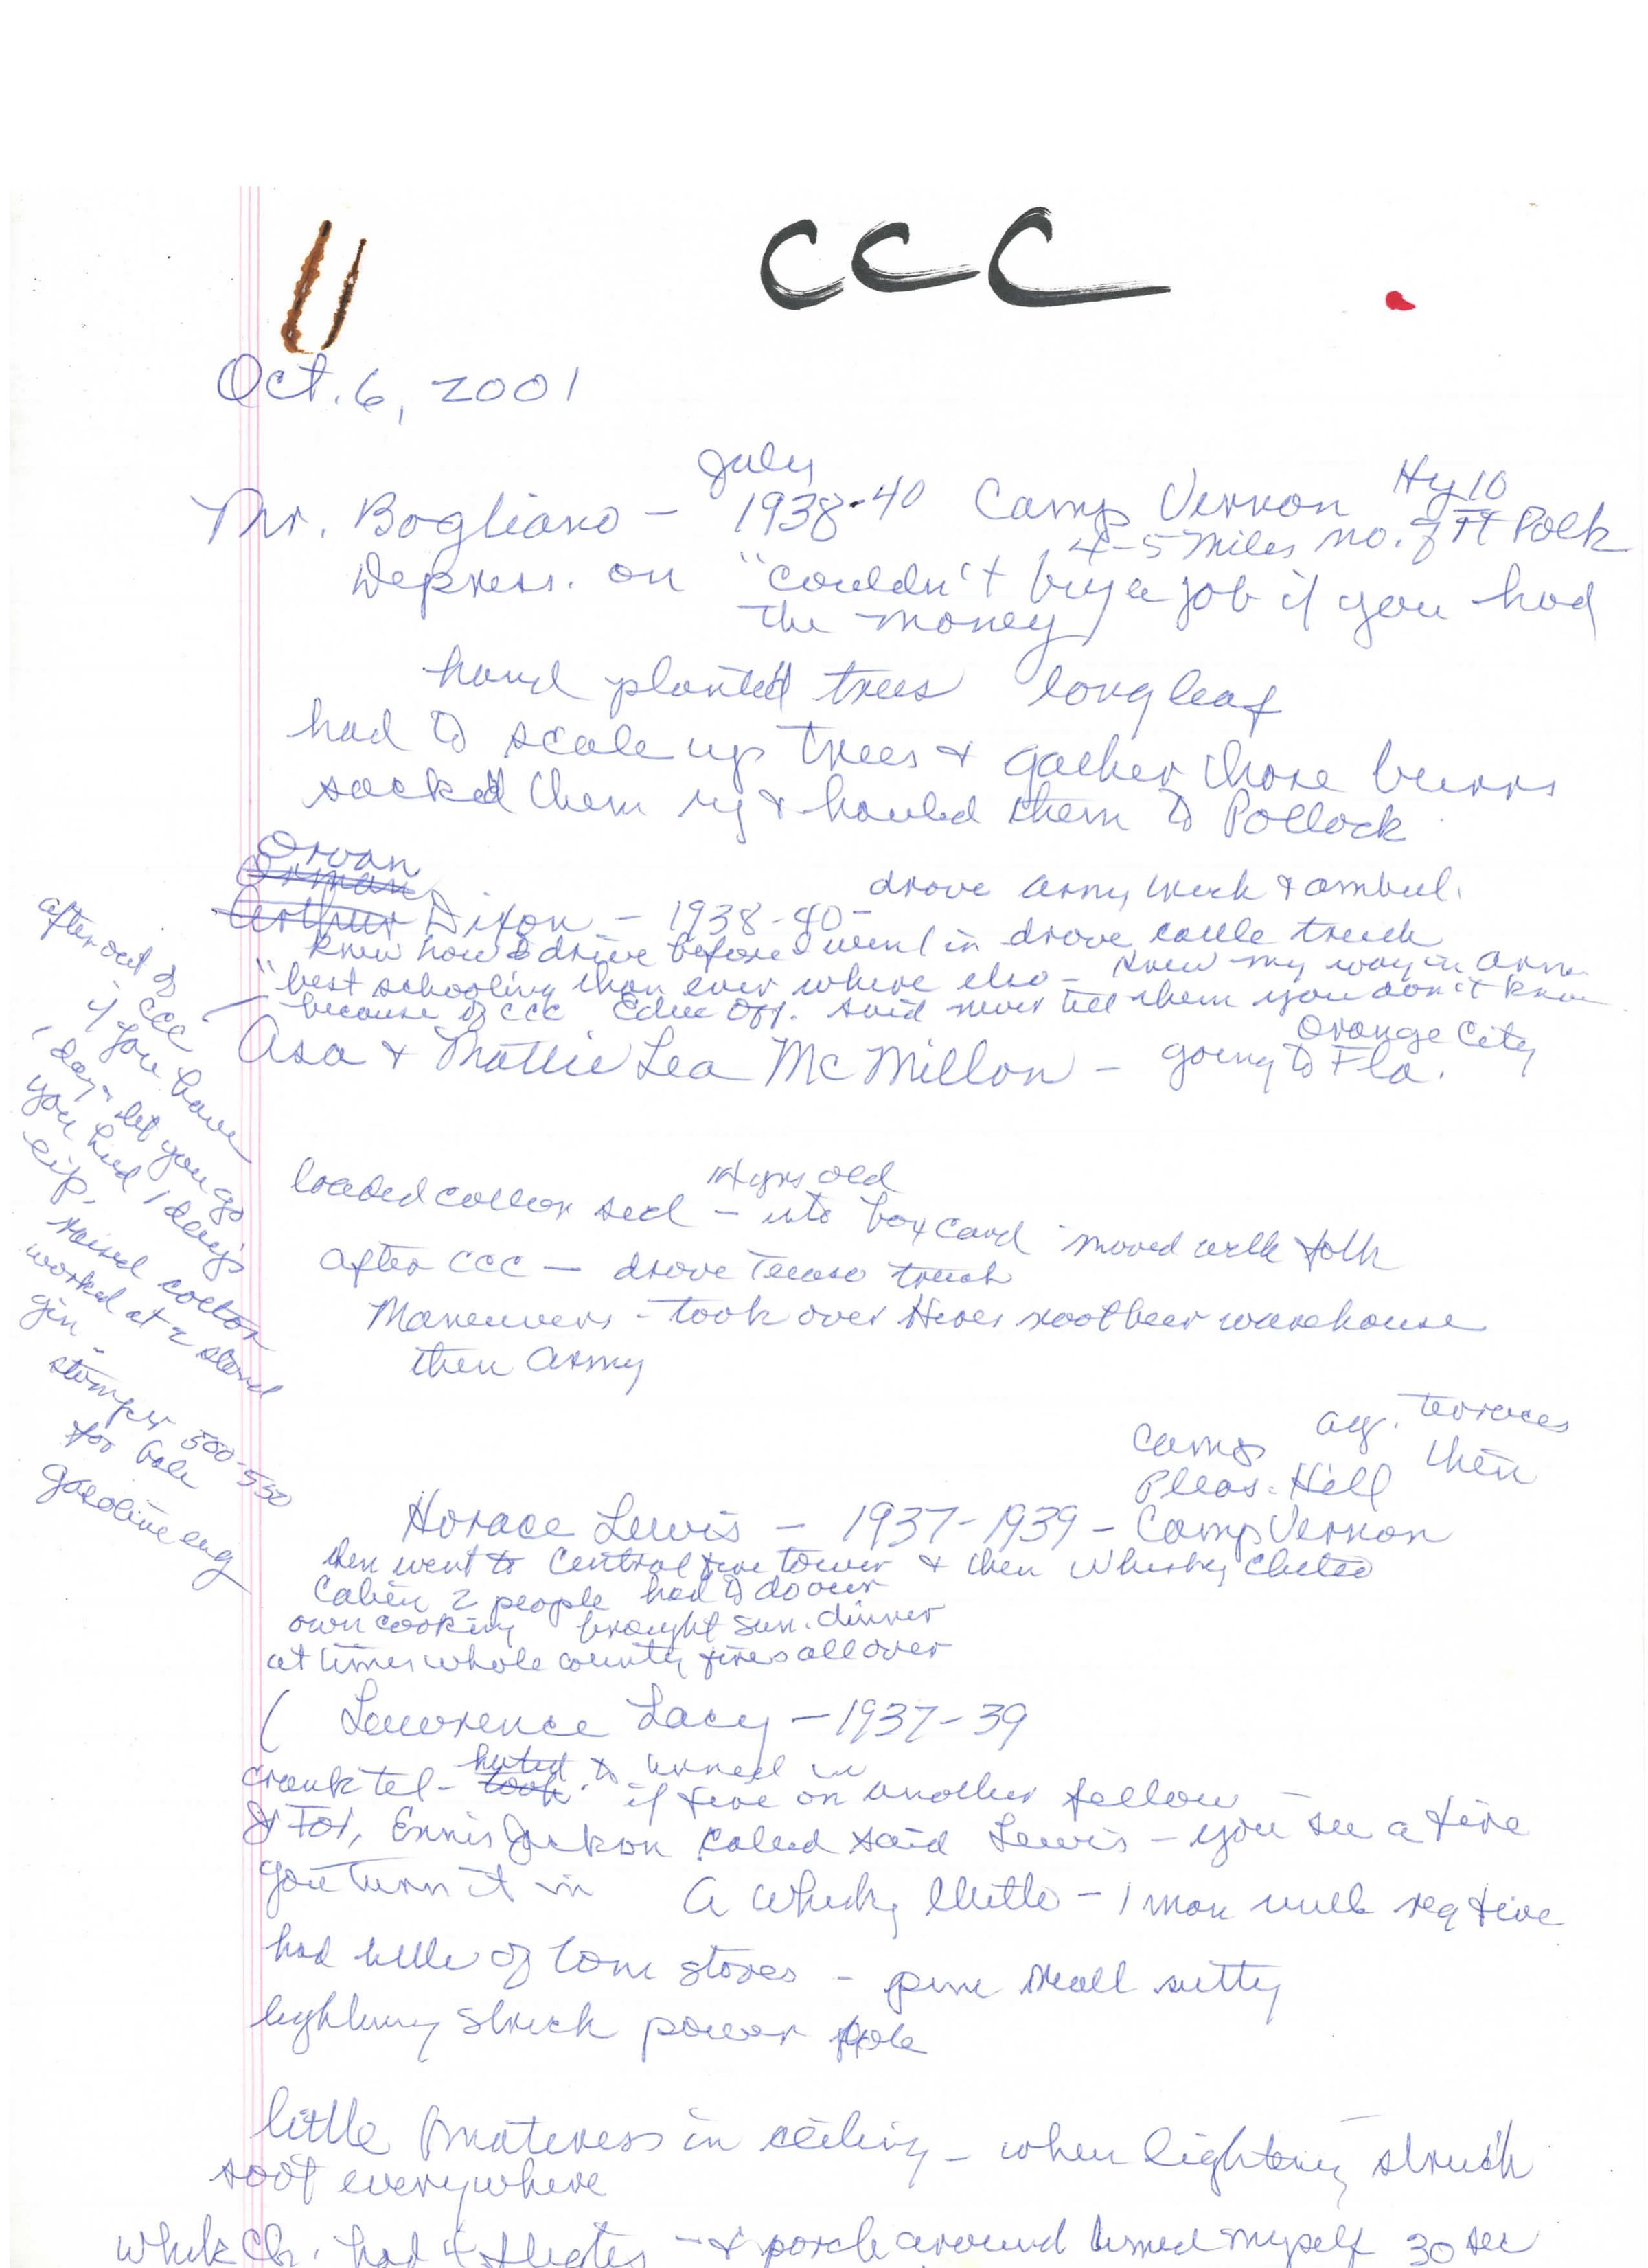 CCC
Oct. 6, 2001
July
Mr. Bogliano - 1938-40 Camp Vernon Hy 10
4-5 miles no. of Ft Polk
Depress. on "couldn't buy a job if you had
the money
hand planted trees longleaf
had to scale up trees & gather those burrs
sacked them up & hauled them to Pollock
Orvan
Dixon - 1938-40 - drove army truck & ambul.
knew how to drive before I went in drove cattle truck
"best schooling than ever where else - knew my way in army
because of CCC Educ Off. said never tell them you don't know
Asa & Mattie Lea McMillon - going to Fla.
Orange City
after out of
CCC
if you have
1 day - let you go
you had 1 day's
exp.
raised cotton
worked at a stand
gin -
stomper 500-550
for bale
gasoline eng
14 yrs old
loaded cotton seed - into box card moved with folk
after CCC - drove Texaco truck
Maneuvers - took over Hires rootbeer warehouse
then Army
Camp ag. terraces
Pleas. Hill then
Horace Lewis - 1937-1939 - Camp Vernon
then went to Central fire tower & then Whisky Chitto
Cabin 2 people had to do our
own cooking brought Sun. dinner
at times whole county fires all over
( Lawrence Lacy - 1937-39
crank tel - hated to turned in
if fire on another fellow
Ennis Jackson called said Lewis - you see a fire
you turn it in a Whisky Chitto - 1 man
had little stoves - pine small
lightning struck power pole
little mateness in ceiling - when lightening struck
soot everywhere
whisk Ch. had - & porch around turned myself 30 sec